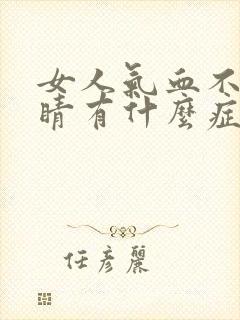 女人氣血不
睛有什麼症
任彥麗